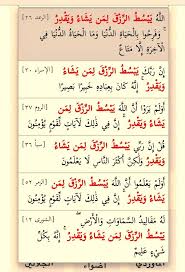 اللَّهُ يَبْسُطُ الرِّزْقَ لِمَن يَشَاءُ وَيَقْدِرُ [الرعد ٢٦]
وَفَرِحُوا بِالْحَيَاةِ الدُّنْيَا وَمَا الْحَيَاةُ الدُّنْيَا فِي
الْآخِرَةِ إِلَّا مَتَاعٌ
إِنَّ رَبَّكَ يَبْسُطُ الرِّزْقَ لِمَن يَشَاءُ [الإسراء ٣٠]
وَيَقْدِرُ إِنَّهُ كَانَ بِعِبَادِهِ خَبِيرًا بَصِيرًا
أَوَلَمْ يَرَوْا أَنَّ اللَّهَ يَبْسُطُ الرِّزْقَ لِمَن يَشَاءُ [الروم ٣٧]
وَيَقْدِرُ إِنَّ فِي ذَلِكَ لَآيَاتٍ لِّقَوْمٍ يُؤْمِنُونَ
قُلْ إِنَّ رَبِّي يَبْسُطُ الرِّزْقَ لِمَن يَشَاءُ [سبأ ٣٦]
وَيَقْدِرُ وَلَكِنَّ أَكْثَرَ النَّاسِ لَا يَعْلَمُونَ
أَوَلَمْ يَعْلَمُوا أَنَّ اللَّهَ يَبْسُطُ الرِّزْقَ لِمَن يَشَاءُ [الزمر ٥٢]
وَيَقْدِرُ إِنَّ فِي ذَلِكَ لَآيَاتٍ لِّقَوْمٍ يُؤْمِنُونَ
لَهُ مَقَالِيدُ السَّمَاوَاتِ وَالْأَرْضِ [الشورى ١٢]
يَبْسُطُ الرِّزْقَ لِمَن يَشَاءُ وَيَقْدِرُ إِنَّهُ بِكُلِّ
شَيْءٍ عَلِيمٌ
الماوردي أضواء الجلالين